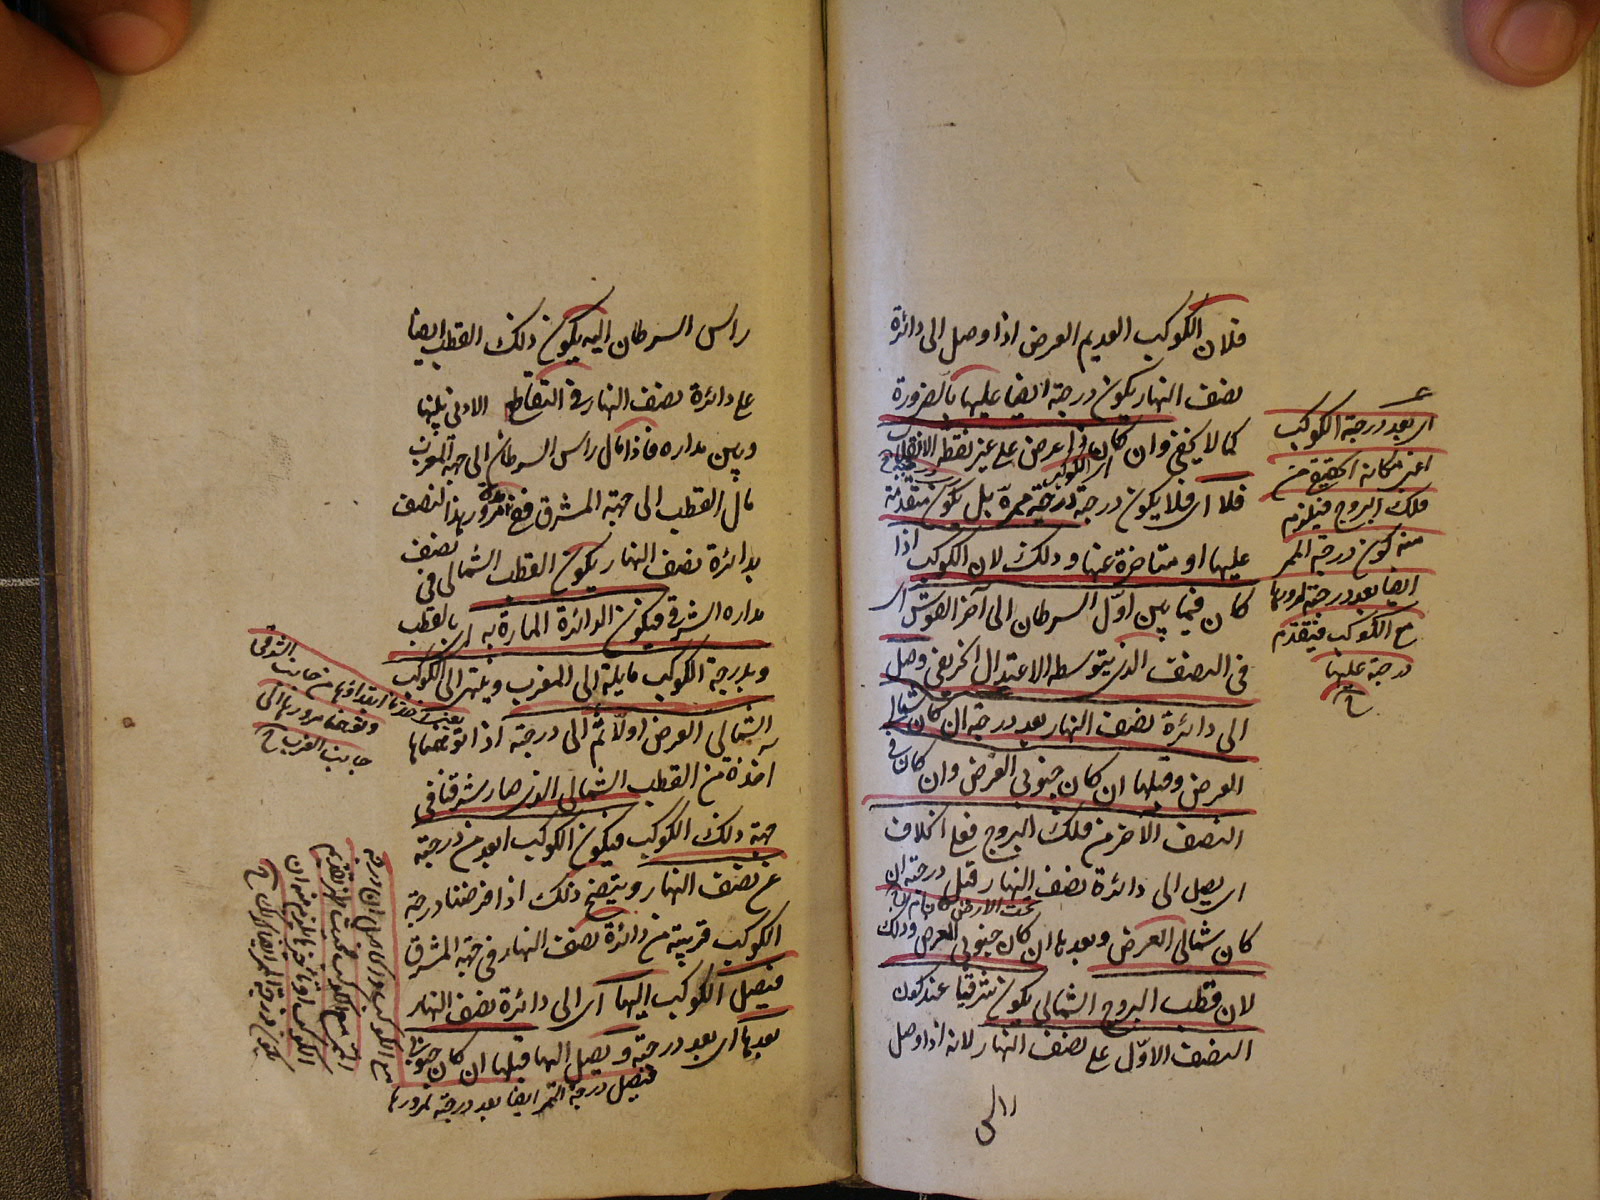 فلان الكوكب العديم العرض اذا وصل الى دائرة
نصف النهار يكون درجته ايضا عليها بالضرورة
كما لا يخفى وان كان ذا عرض على غير نقطة الانقلاب
اى الكوكب
فلا اى فلا يكون درجته درجة ممره بل يكون متقدمة
عليها او متاخرة عنها وذلك لان الكوكب اذا
كان فيما بين اول السرطان الى آخر القوس اى
فى النصف الذى يتوسطه الاعتدال الخريفى وصل
الى دائرة نصف النهار بعد درجته ان كان شمالى
العرض وقبلها ان كان جنوبى العرض وان كان فى
النصف الآخر من فلك البروج فعلى الخلاف
اى يصل الى دائرة نصف النهار قبل درجته ان
تحت الارض
كان شمالى العرض وبعدها ان كان جنوبى العرض وذلك
لان قطب البروج الشمالى يكون شرقيا عند كون
النصف الاول على نصف النهار لانه اذا وصل
اى بعد درجة الكوكب
اعنى مكانه الحقيقى من
فلك البروج فيلزم
منه كون درجة الممر
ايضا بعد درجته لمرورها
مع الكوكب فيتقدم
درجته عليها
راس السرطان اليه يكون ذلك القطب ايضا
على دائرة نصف النهار فى التقاطع الادنى بينها
وبين مداره فاذا مال راس السرطان الى جهة المغرب
مال القطب الى جهة المشرق ففى مرور هذا النصف
بدائرة نصف النهار يكون القطب الشمالى فى نصف
مداره الشرقى فيكون الدائرة المارة به اى بالقطب
وبدرجة الكوكب مايلة الى المغرب وينتهى الى الكوكب
الشمالى العرض اولا ثم الى درجته اذا توهمناها
آخذة من القطب الشمالى الذى صار شرقيا فى
جهة ذلك الكوكب فيكون الكوكب ابعد من درجته
عن نصف النهار ويتضح ذلك اذا فرضنا درجة
الكوكب قريبة من دائرة نصف النهار فى جهة المشرق
فيصل الكوكب اليها اى الى دائرة نصف النهار
بعدها اى بعد درجته ويصل اليها قبلها ان كان جنوبى
فيصل درجة الممر ايضا بعد درجته لمرورها
جانب الغرب